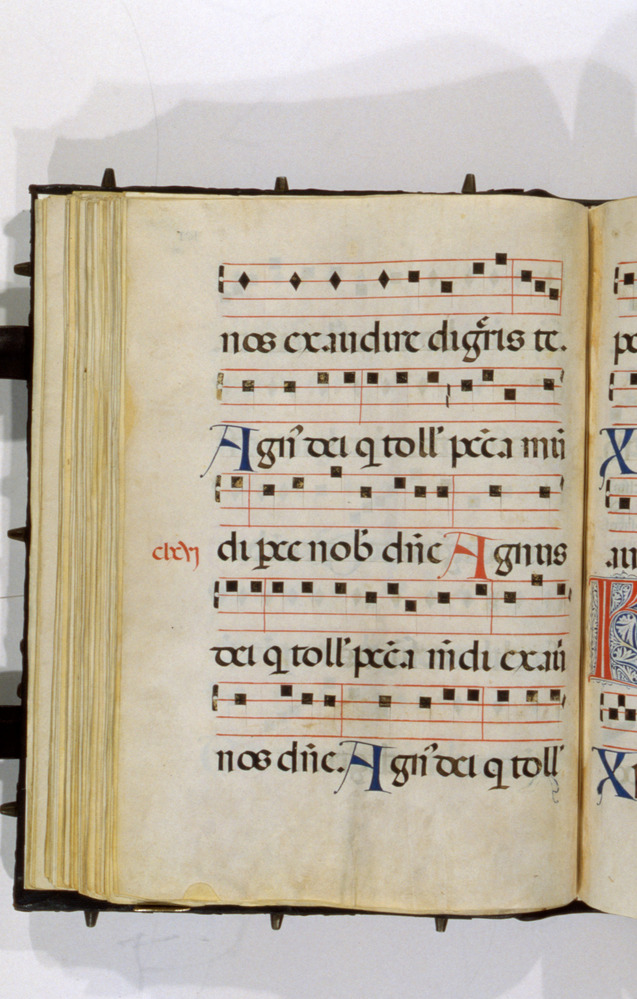 nos exaudire dign̄ris te.
Agn̄ dei q toll' pc̄ca mū
clxvj
di pcc nob' dn̄e Agnus
dei q toll' pc̄ca m̄di exau
nos dn̄e. Agn̄ dei q toll'